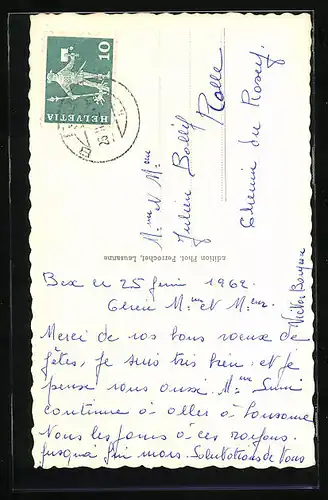 HELVETIA
10
Mme M Mme
Julien Bolly
Rolle
Chemin du Rosey.
Edition Phot. Perrochet, Lausanne
Bex le 25 1962.
Mme et Mme
Merci de vos bons voeux de
fêtes, je suis très bien et je
pense vous aussi. Mme
continue à aller à Lausanne
Tous les jours à ces rayons.
jusqu'à fin mars. Salutations de Tous
Victor